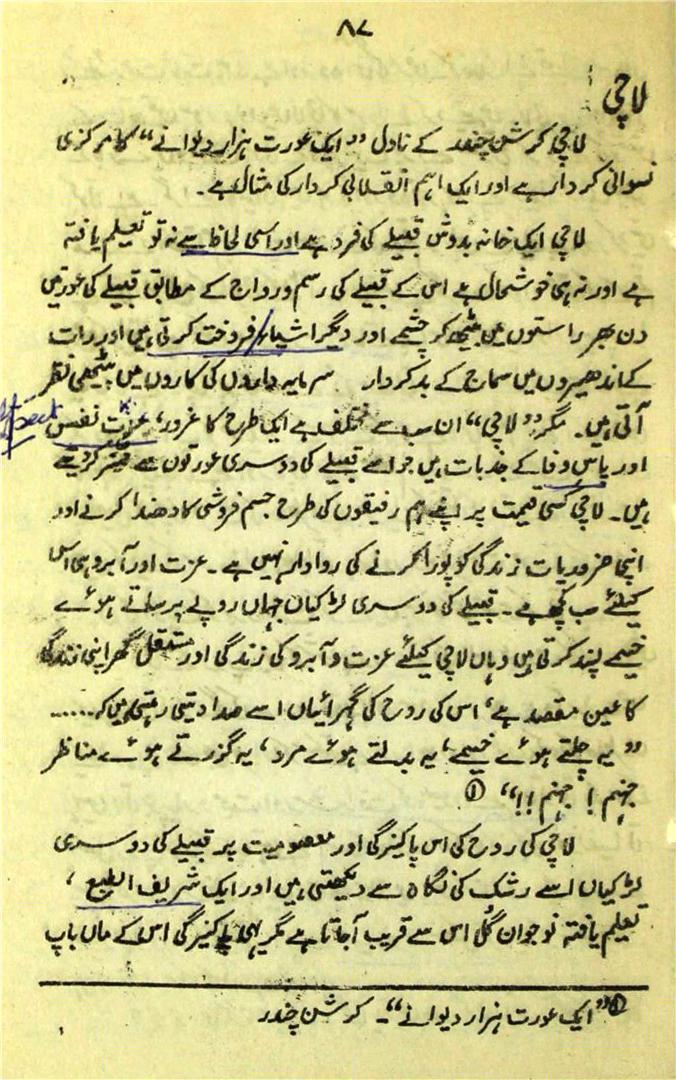 ۸۷
لاچی :
لاچی کرشن چندر کے ناول ”ایک عورت ہزار دیوانے“ کا مرکزی
نسوانی کردار ہے اور ایک اہم انقلابی کردار کی مثال ہے ۔
لاچی ایک خانہ بدوش قبیلے کی فرد ہے اور اسی لحاظ سے نہ تو تعلیم یافتہ
ہے اور نہ ہی خوشحال ہے اس کے قبیلے کی رسم و رواج کے مطابق قبیلے کی عورتیں
دن بھر راستوں میں بیٹھ کر چشمے اور دیگر اشیاء فروخت کرتی ہیں اور رات
کے اندھیروں میں سماج کے بدکردار سرمایہ داروں کی کاروں میں بیٹھی نظر
آتی ہیں۔ مگر ”لاچی“ ان سب سے مختلف ہے ایک طرح کا غرور، عزت نفس
اور پاس وفا کے جذبات ہیں جو اسے قبیلے کی دوسری عورتوں سے ممیز کرتے
ہیں۔ لاچی کسی قیمت پر اپنے ہم رفیقوں کی طرح جسم فروشی کا دھندا کرنے اور
اپنی ضروریات زندگی کو پورا کرنے کی روادار نہیں ہے ۔ عزت اور آبرو ہی اس
کیلئے سب کچھ ہے ۔ قبیلے کی دوسری لڑکیاں جہاں روپے پر چلتے ہوئے
خیمے پسند کرتی ہیں وہاں لاچی کیلئے عزت و آبرو کی زندگی اور مستقل گھر اپنی زندگی
کا عین مقصد ہے، اس کی روح کی گہرائیاں اسے صدا دیتی رہتی ہیں کہ ......
”یہ چلتے ہوئے خیمے، یہ بدلتے ہوئے مرد، یہ گزرتے ہوئے مناظر
جہنم ! جہنم !!“ ①
لاچی کی روح کی اس پاکیزگی اور معصومیت پر قبیلے کی دوسری
لڑکیاں اسے رشک کی نگاہ سے دیکھتی ہیں اور ایک شریف الطبع ،
تعلیم یافتہ نوجوان گل اس سے قریب آجاتا ہے مگر یہی پاکیزگی اس کے ماں باپ
① ”ایک عورت ہزار دیوانے“۔ کرشن چندر